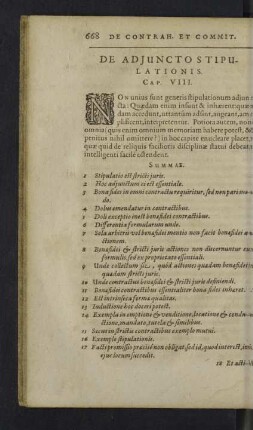 668 DE CONTRAH. ET COMMIT.
DE ADJUNCTO STIPU-
LATIONIS.
CAP. VIII.
NOn unius sunt generis stipulationum adiun-
cta: Quædam enim insunt & inhærent: quæ-
dam accedunt, ut tantum adsint, augeant, am-
plificent, interpretentur. Potiora autem, non
omnia (quis enim omnium memoriam habere potest, &
penitus nihil omittere?) in hoc capite enucleare placet,
quæ quid de reliquis facilioris disciplinæ statui debeat
intelligenti facile ostendent.
SUMMAE.
1 Stipulatio est stricti juris.
2 Hoc adjunctum ei est essentiale.
3 Bona fides in omni contractu requiritur, sed non pari mo-
do.
4 Dolus emendatur in contractibus.
5 Doli exceptio inest bonæ fidei contractibus.
6 Differentia formularum unde.
7 Sola arbitrii vel bonæ fidei mentio non facit bonæ fidei a-
ctionem.
8 Bonæ fidei & stricti juris actiones non discernuntur ex
formulis, sed ex proprietate essentiali.
9 Unde collectum sit, quod actiones quædam bonæ fidei,
quædam stricti juris.
10 Unde contractus bonæ fidei & stricti juris definiendi.
11 Bonæ fidei contractibus essentialiter bona fides inhæret.
12 Est intrinseca forma qualitas.
13 Inductione hoc doceri potest.
14 Exempla in emptione & venditione, locatione & condu-
ctione, mandato, tutela & similibus.
15 Secus in strictis contractibus exemplo mutui.
16 Exemplo stipulationis.
17 Facti promissio præcise non obligat, sed id, quod interest, in
ejus locum succedit.
18 Et acti-